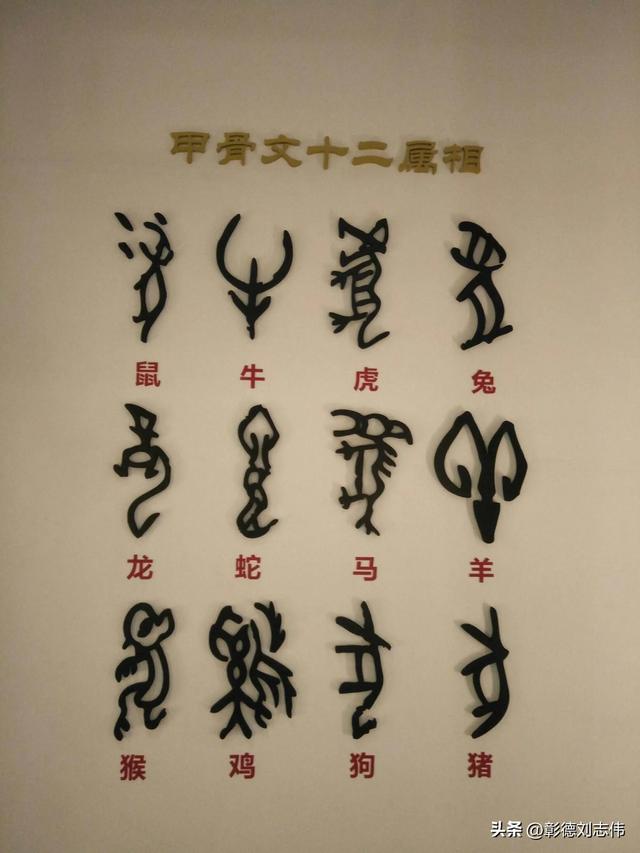 甲骨文十二属相
鼠 牛 虎 兔
龙 蛇 马 羊
猴 鸡 狗 猪
头条 @彰德刘志伟